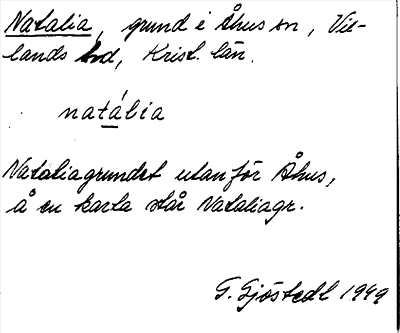 Natalia, grund i Åhus sn, Vil-
lands hd, Krist. län.
natália
Nataliagrundet utanför Åhus,
å en karta står Nataliagr.
G. Sjöstedt 1949